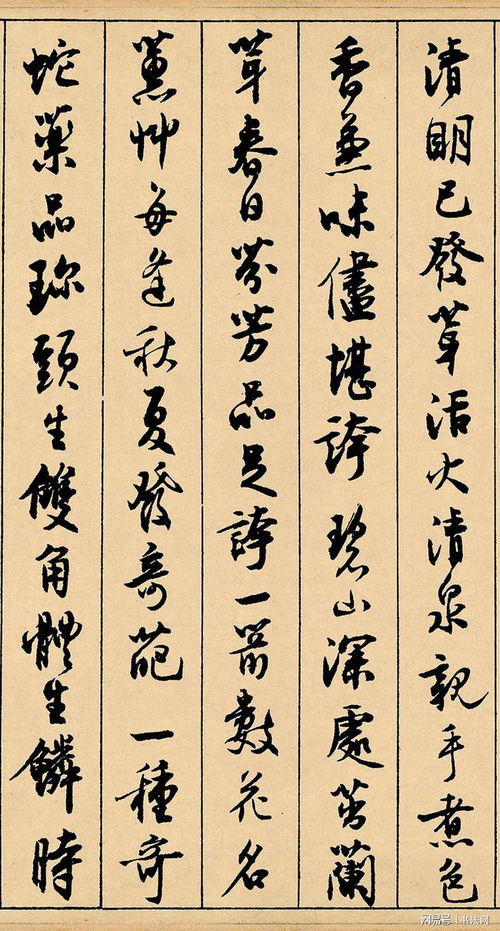 清明已發芽活火清泉親手煮色
香兼味儘堪誇碧山深處茁蘭
芽春日芬芳品足誇一箭數花名
蕙艸每逢秋夏發奇葩一種奇
蛇藥品珎頭生雙角體生鱗時
网易号 | 书法网